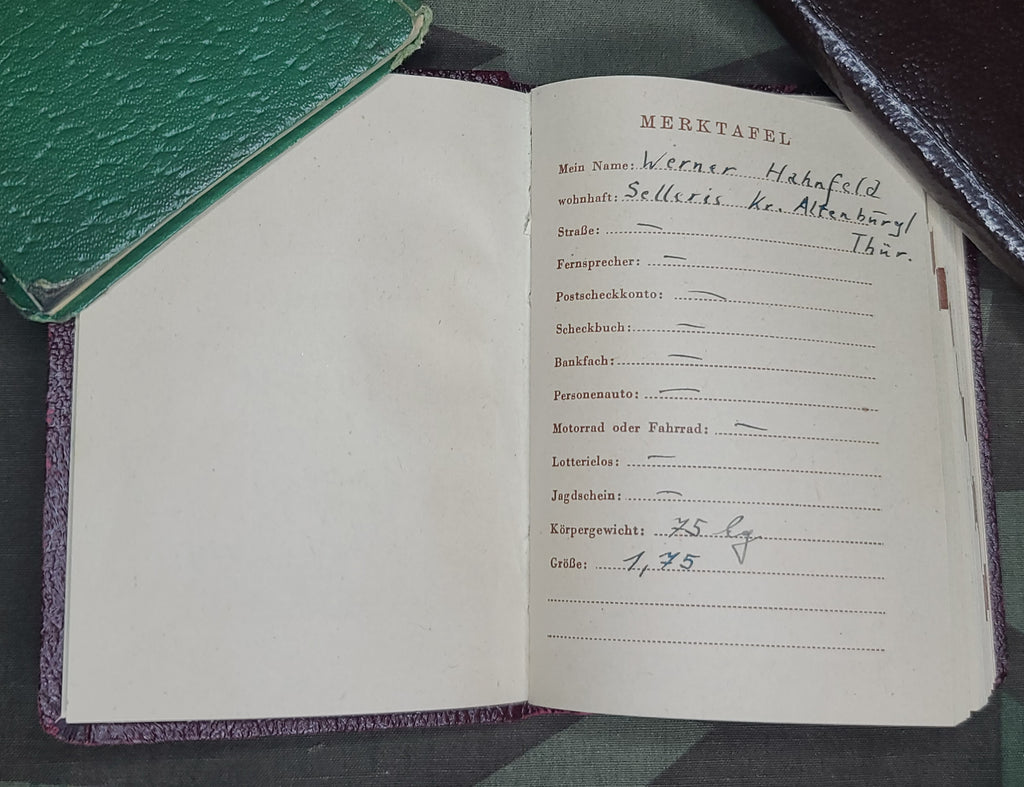 MERKTAFEL
Mein Name: Werner Hahnfeld
wohnhaft: Selleris Kr. Altenburg/
Thür.
Straße: —
Fernsprecher: —
Postscheckkonto: —
Scheckbuch: —
Bankfach: —
Personenauto: —
Motorrad oder Fahrrad: —
Lotterielos: —
Jagdschein: —
Körpergewicht: 75 kg
Größe: 1,75